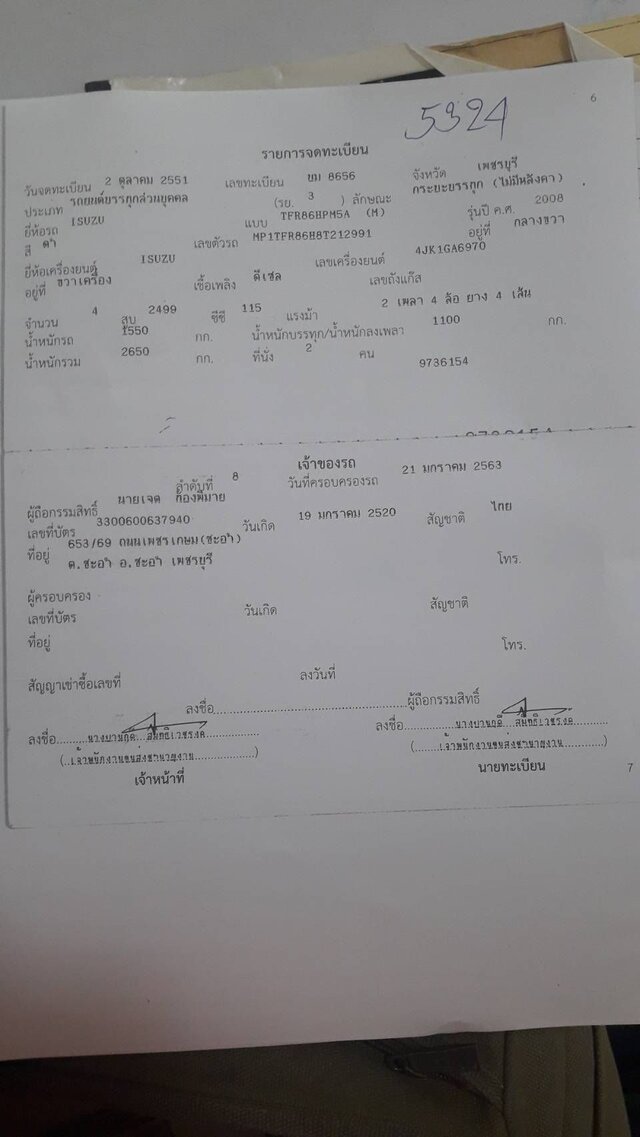 5324
6
รายการจดทะเบียน
วันจดทะเบียน 2 ตุลาคม 2551 เลขทะเบียน บม 8656 จังหวัด เพชรบุรี
ประเภท รถยนต์บรรทุกส่วนบุคคล (รย. 3 ) ลักษณะ กระบะบรรทุก (ไม่มีหลังคา)
ยี่ห้อรถ ISUZU แบบ TFR86HPM5A (M) รุ่นปี ค.ศ. 2008
สี ดำ เลขตัวรถ MP1TFR86H8T212991 อยู่ที่ กลางขวา
ยี่ห้อเครื่องยนต์ ISUZU เลขเครื่องยนต์ 4JK1GA6970
อยู่ที่ ขวาเครื่อง เชื้อเพลิง ดีเซล เลขถังแก๊ส
จำนวน 4 สูบ 2499 ซีซี 115 แรงม้า 2 เพลา 4 ล้อ ยาง 4 เส้น
น้ำหนักรถ 1550 กก. น้ำหนักบรรทุก/น้ำหนักลงเพลา 1100 กก.
น้ำหนักรวม 2650 กก. ที่นั่ง 2 คน 9736154
เจ้าของรถ
ลำดับที่ 8 วันที่ครอบครองรถ 21 มกราคม 2563
ผู้ถือกรรมสิทธิ์ นายเจต ก้องพิมาย
เลขที่บัตร 3300600637940 วันเกิด 19 มกราคม 2520 สัญชาติ ไทย
ที่อยู่ 653/69 ถนนเพชรเกษม(ชะอำ)
ต.ชะอำ อ.ชะอำ เพชรบุรี โทร.
ผู้ครอบครอง
เลขที่บัตร วันเกิด สัญชาติ
ที่อยู่ โทร.
สัญญาเช่าซื้อเลขที่ ลงวันที่
ลงชื่อ ผู้ถือกรรมสิทธิ์
ลงชื่อ ลงชื่อ
(..เจ้าพนักงานขนส่งชำนาญงาน) (..เจ้าพนักงานขนส่งชำนาญงาน)
เจ้าหน้าที่ นายทะเบียน
7